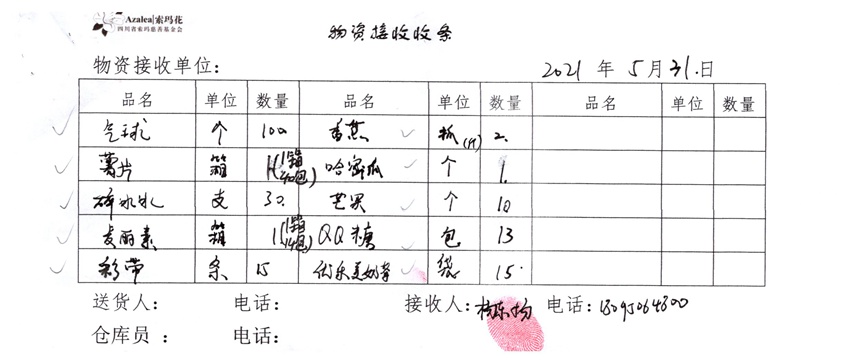 Azalea|索玛花
四川省索玛慈善基金会
物资接收收条
物资接收单位： 2021 年 5月 31.日
品名 单位 数量 品名 单位 数量 品名 单位 数量
气球 个 100 香蕉 2.
薯片 箱 1(1箱40包) 哈密瓜 个 1.
碎冰冰 支 30. 芒果 个 10
麦丽素 箱 1(1箱14包) QQ糖 包 13
彩带 条 15 优乐美奶茶 袋 15
送货人： 电话： 接收人： 电话：
仓库员 ： 电话：